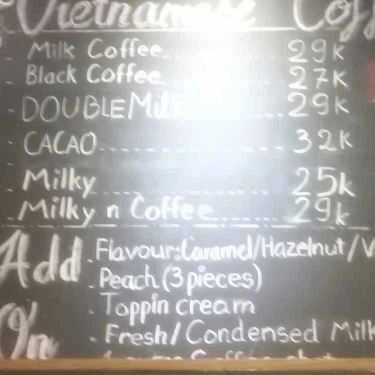 Vietnamese Coff
Milk Coffee 29K
Black Coffee 27K
DOUBLE Milk 29K
CACAO 32K
Milky 25k
Milky n Coffee 29k
Add On
Flavour: Caramel/Hazelnut/V
Peach (3 pieces)
Toppin cream
Fresh/Condensed Milk